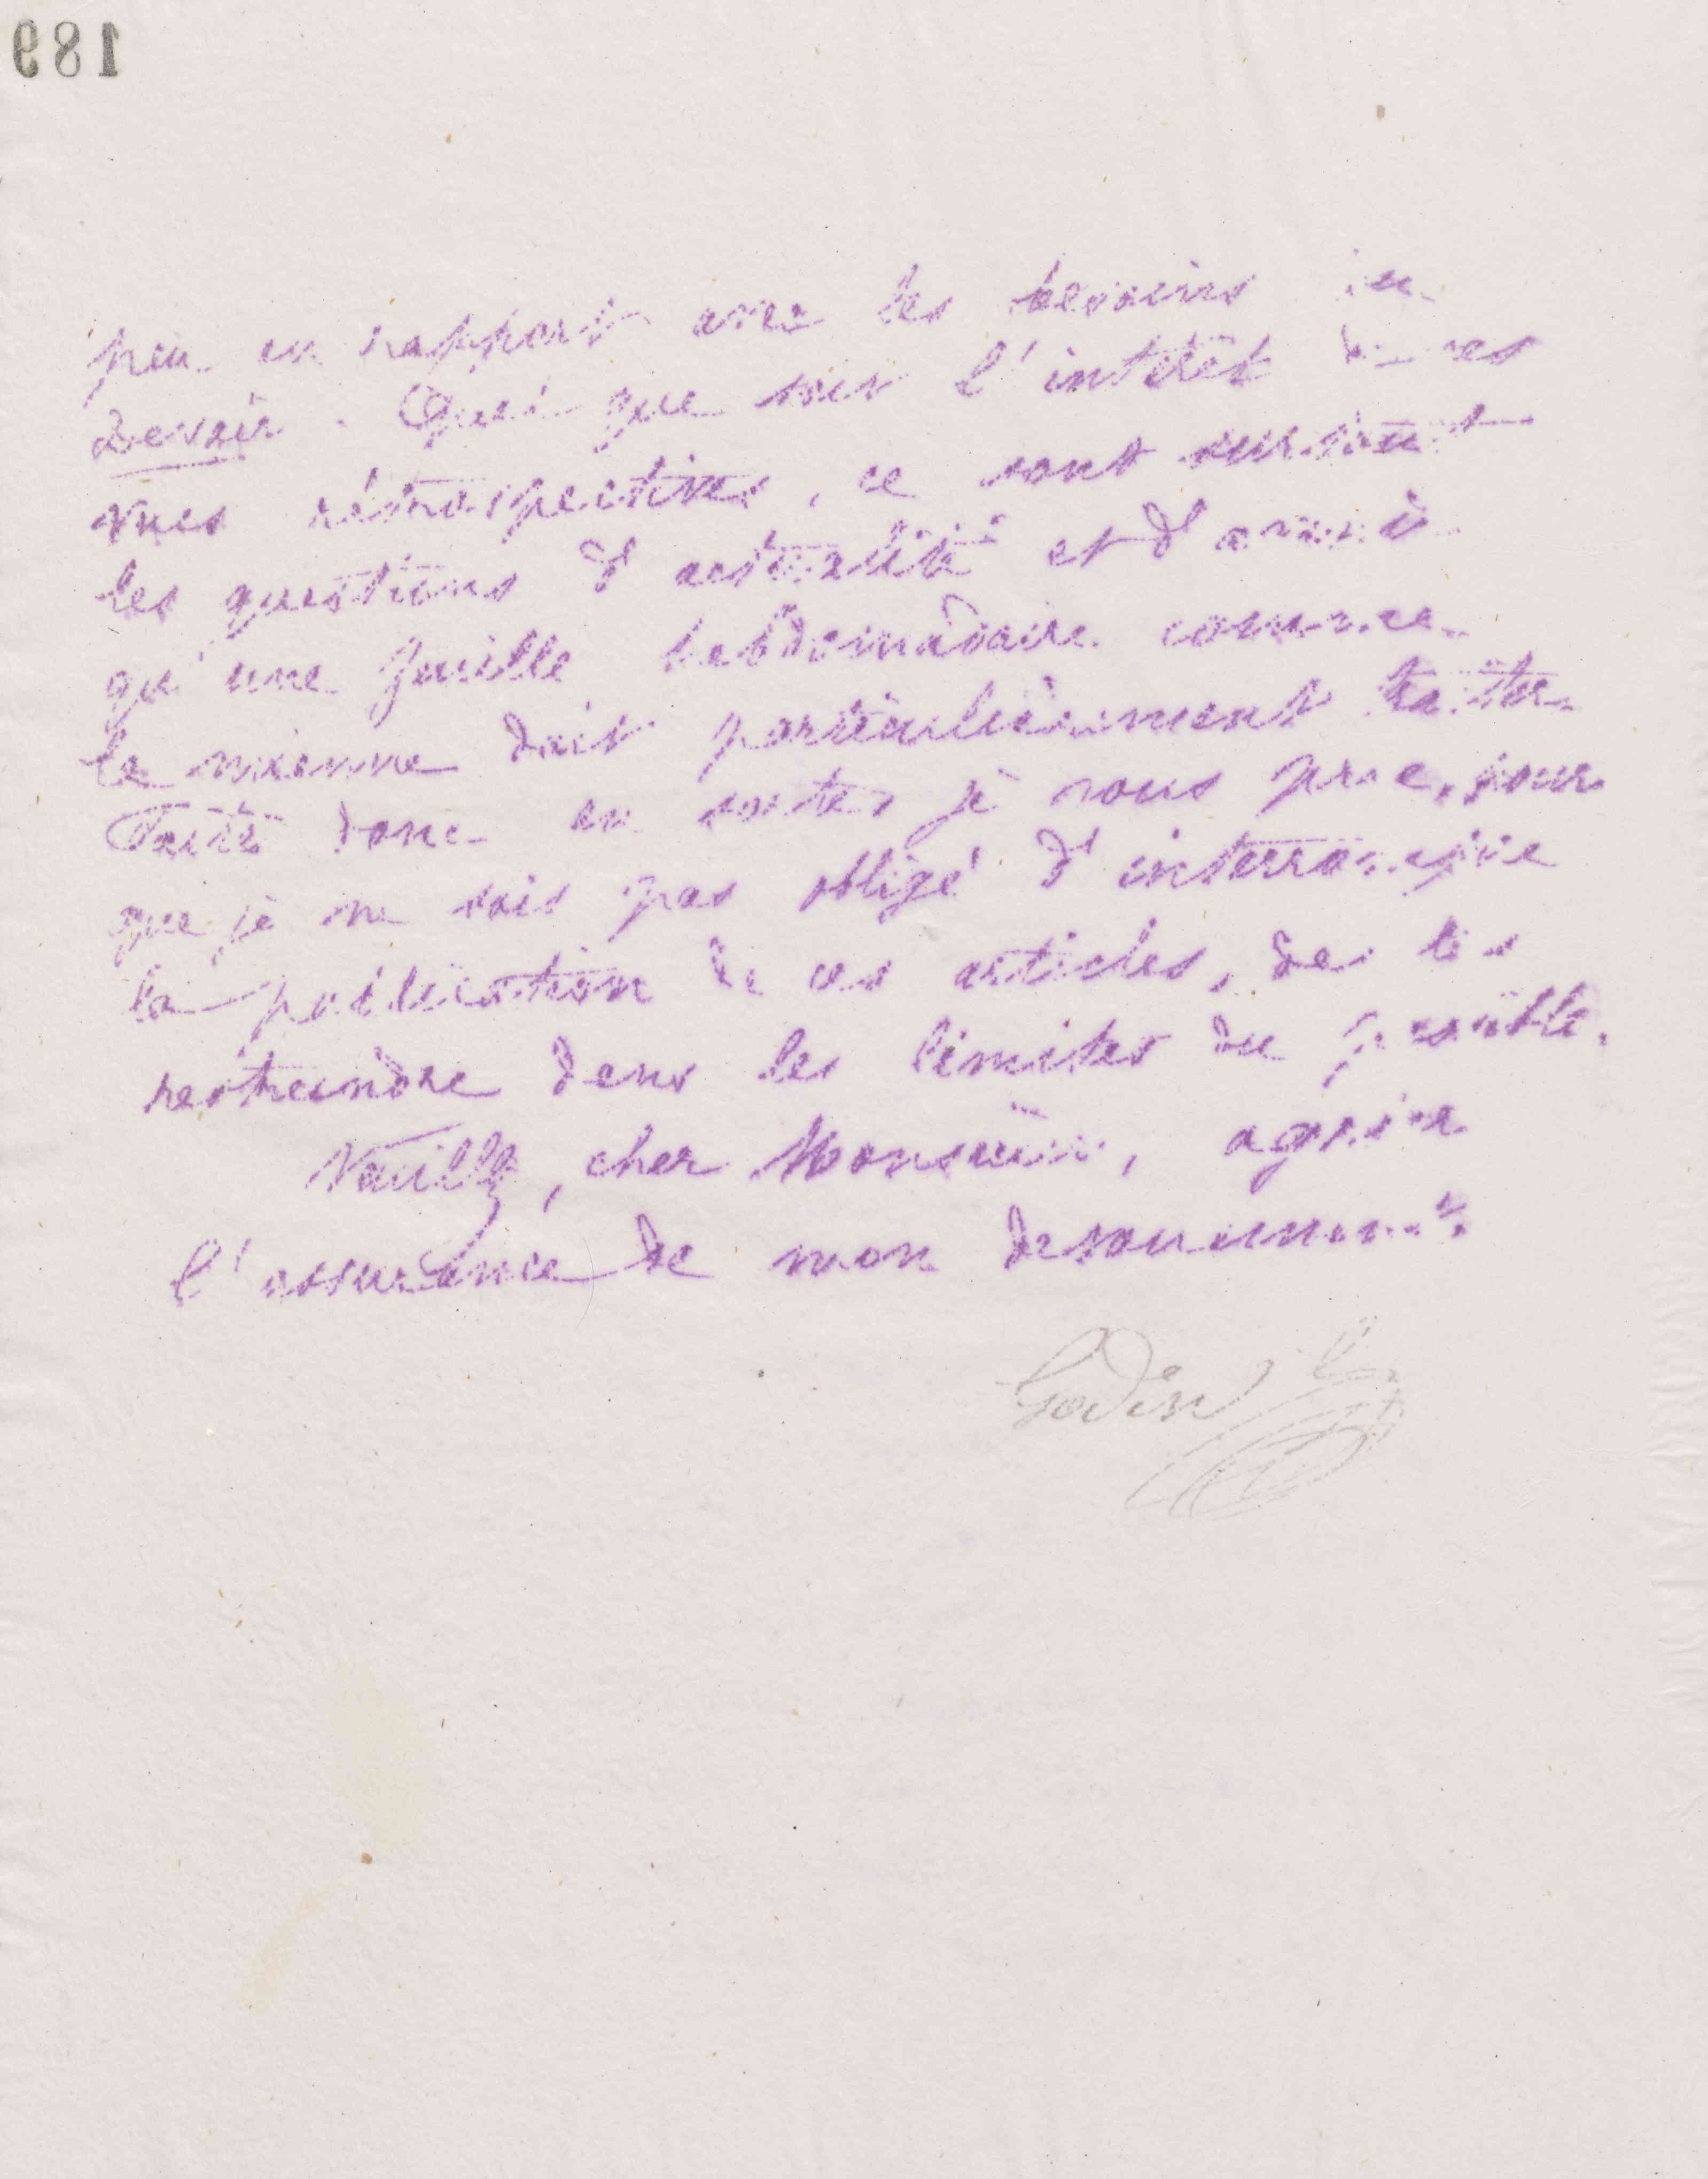 189
peu en rapport avec les besoins du
Devoir. Quel que soit l'intérêt de ces
vues rétrospectives, ce sont surtout
les questions d'actualité et d'avenir
qu'une feuille hebdomadaire comme
la mienne doit particulièrement traiter.
Faites donc en sorte, je vous prie, pour
que je ne sois pas obligé d'interrompre
la publication de ces articles, de les
restreindre dans les limites du possible.
Veuillez, cher Monsieur, agréer
l'assurance de mon dévouement.
Godin